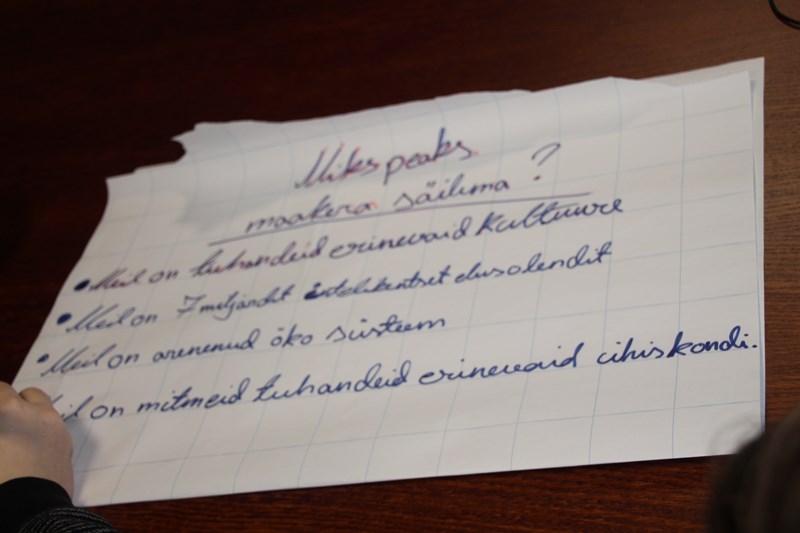 Miks peaks
maakera säilima ?
• Meil on tuhandeid erinevaid kultuure
• Meil on 7 miljardit intelikentset elusolendit
• Meil on arenenud öko süsteem
il on mitmeid tuhandeid erinevaid ühiskondi.